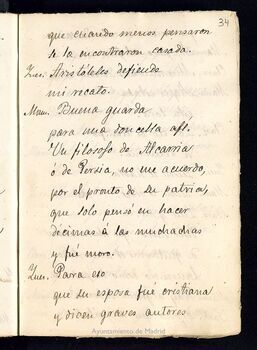 34
que cuando menos pensaron
se la encontraron casada.
Luc. Aristóteles defiendo
mi recato.
Mam. Buena guarda
para una doncella así.
Un filosofo de Alcarria
ó de Persia, no me acuerdo,
por el pronto de su patria,
que solo pensó en hacer
decimas á las muchachas
y fué moro.
Luc. Para eso
que su esposa fué cristiana
y dicen graves autores
Ayuntamiento de Madrid